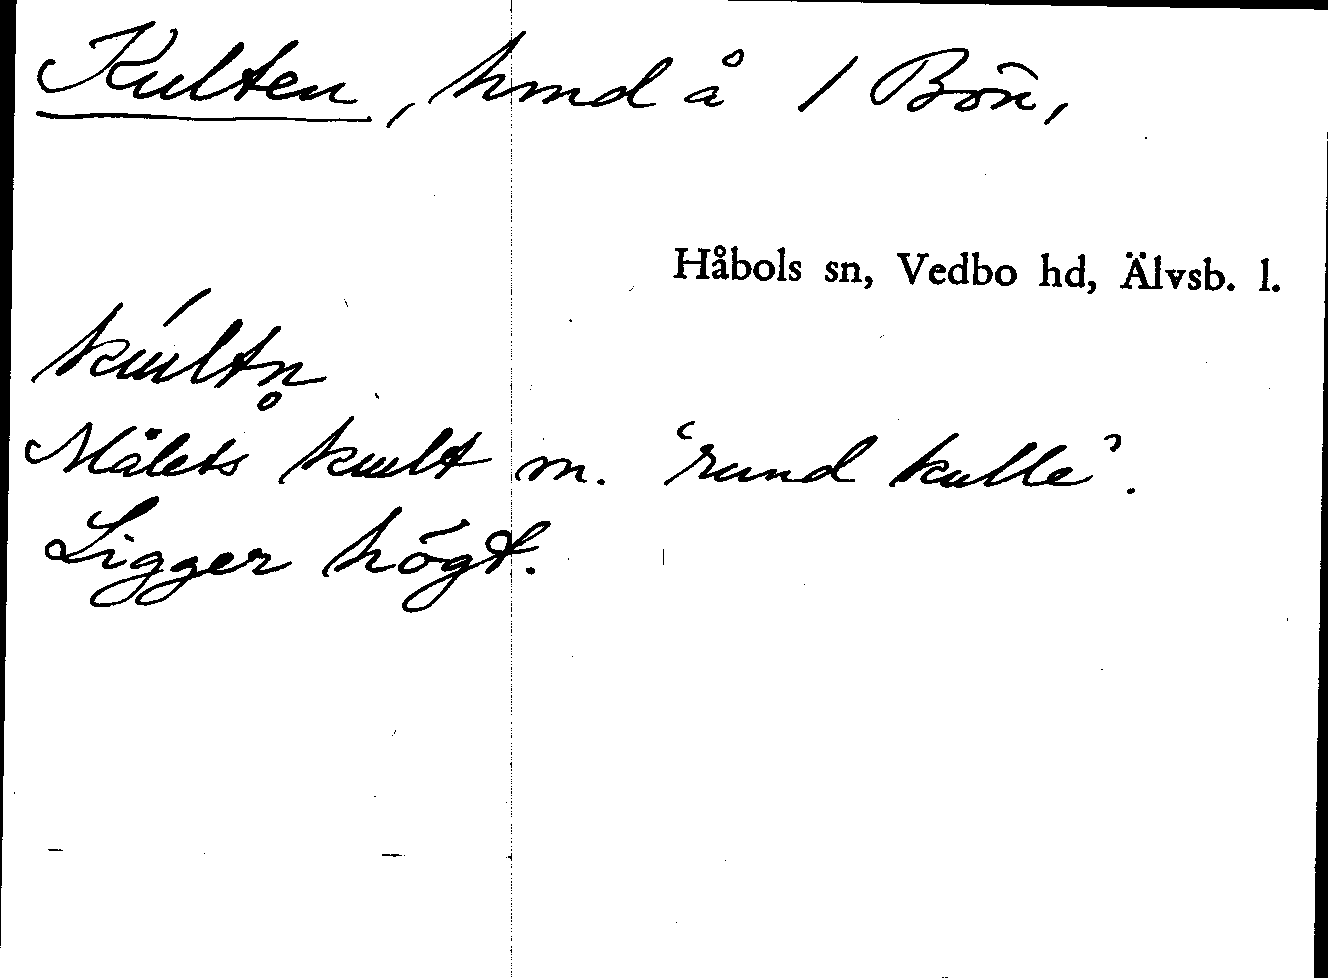 Kulten, hmd å 1 Bön,
Håbols sn, Vedbo hd, Älvsb. l.
kúltn̥
Målets kult m. ‘rund kulle’.
Ligger högt.